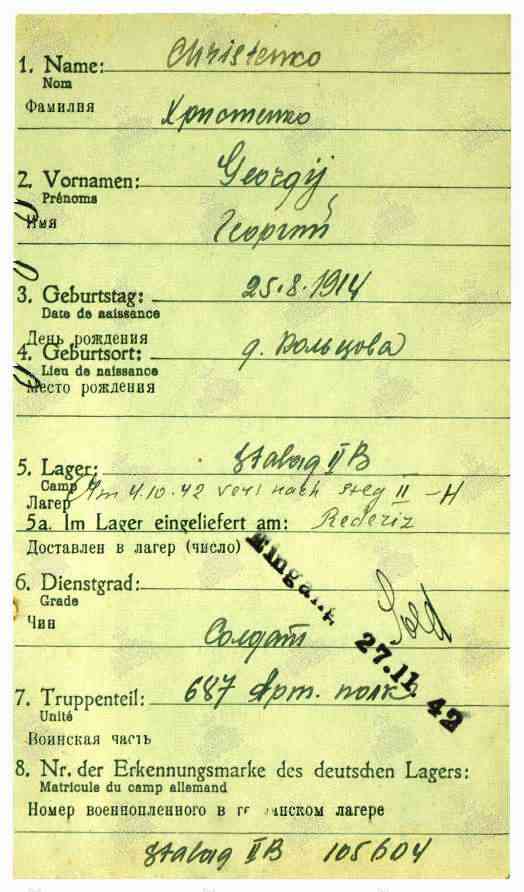 Christenko
1. Name:
Nom
Фамилия
Христенко
Georgij
2. Vornamen:
Prénoms
Имя
Георгий
25.8.1914
3. Geburtstag:
Date de naissance
День рождения
д. Кольцова
4. Geburtsort:
Lieu de naissance
Место рождения
Stalag II B
5. Lager:
Camp
Am 4.10.42 vers nach Stlg II -H
Лагерь
5a. Im Lager eingeliefert am: Rederiz
Доставлен в лагер (число)
Eingang 27.11.42
6. Dienstgrad:
Grade
Sold
Чин
Солдат
687 Арт. полк
7. Truppenteil:
Unité
Воинская часть
8. Nr. der Erkennungsmarke des deutschen Lagers:
Matricule du camp allemand
Номер военнопленного в германском лагере
Stalag II B 105604